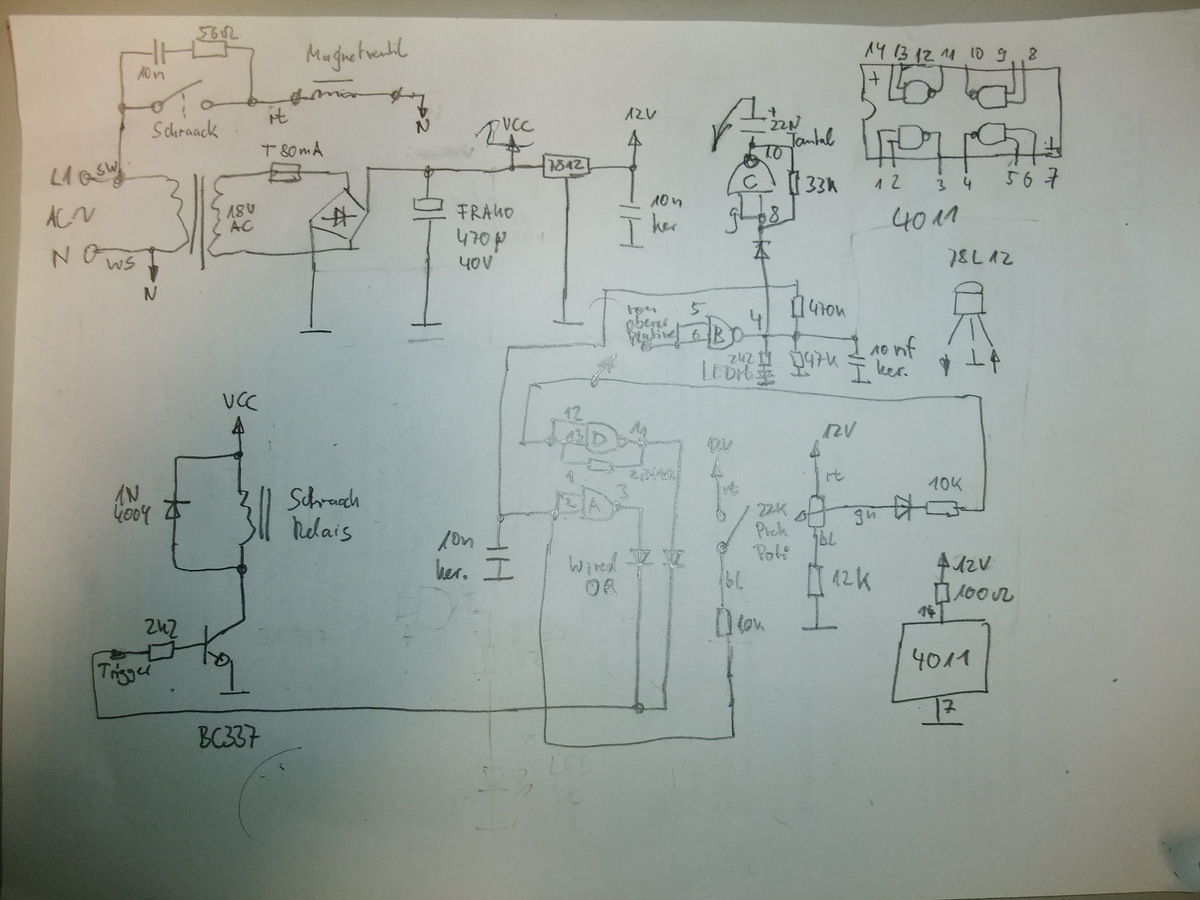 56Ω
10n
Magnetventil
Schraack
rt
N
L1
SW
AC
N
WS
N
T 80mA
18V
AC
FRAKO
470µ
40V
VCC
7812
12V
10n
ker
+
22N
Tantal
10
C
33k
9 8
14 13 12 11 10 9 8
+
1 2 3 4 5 6 7
4011
78L12
von
oberer
Platine
5
6
B
4
470k
2k2
LED rt
47k
10nf
ker.
VCC
1N
4004
Schraack
Relais
2k2
Trigger
BC337
10n
ker.
12
13
D
11
1
2
A
3
Wired
OR
rt
bL
10k
22K
Pick
Poti
12V
rt
gn
10K
bL
12k
12V
100Ω
14
4011
7